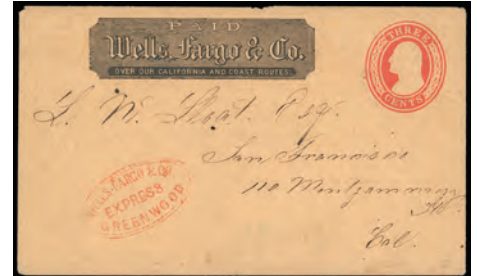 PAID
Wells, Fargo & Co.
OVER OUR CALIFORNIA AND COAST ROUTES.
THREE
CENTS
L. W. Sloat. Esqr.
San Francisco
110 Montgommery
St.
Cal.
WELLS-FARGO & CO.
EXPRESS
GREENWOOD